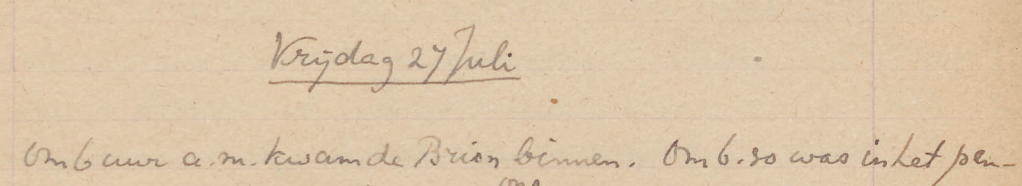 Vrijdag 27 Juli
Om 6 uur a.m. kwam de Brion binnen. Om 6.30 was in het pen-